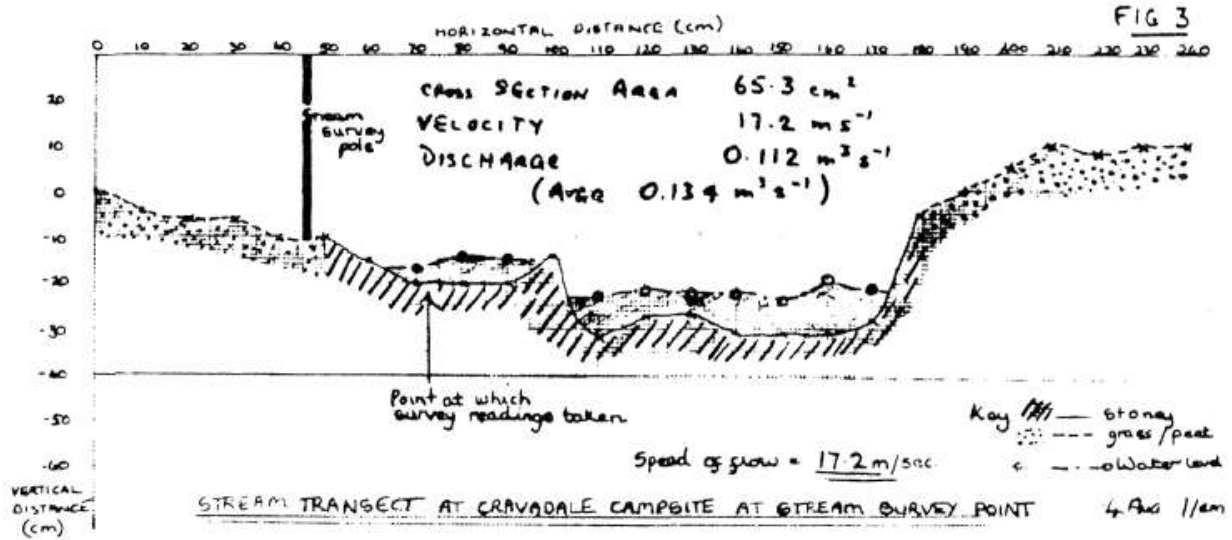 FIG 3
HORIZONTAL DISTANCE (cm)
0 10 20 30 40 50 60 70 80 90 100 110 120 130 140 150 160 170 180 190 200 210 220 230 240
20
10
0
-10
-20
-30
-40
-50
-60
VERTICAL
DISTANCE
(cm)
Stream
survey
pole
CROSS SECTION AREA 65.3 cm²
VELOCITY 17.2 m s⁻¹
DISCHARGE 0.112 m³ s⁻¹
(AVGE 0.134 m³ s⁻¹)
Point at which
survey readings taken
Key
stoney
grass/peat
Water level
Speed of flow = 17.2 m/sec.
STREAM TRANSECT AT CRAVADALE CAMPSITE AT STREAM SURVEY POINT
4 Aug 11am